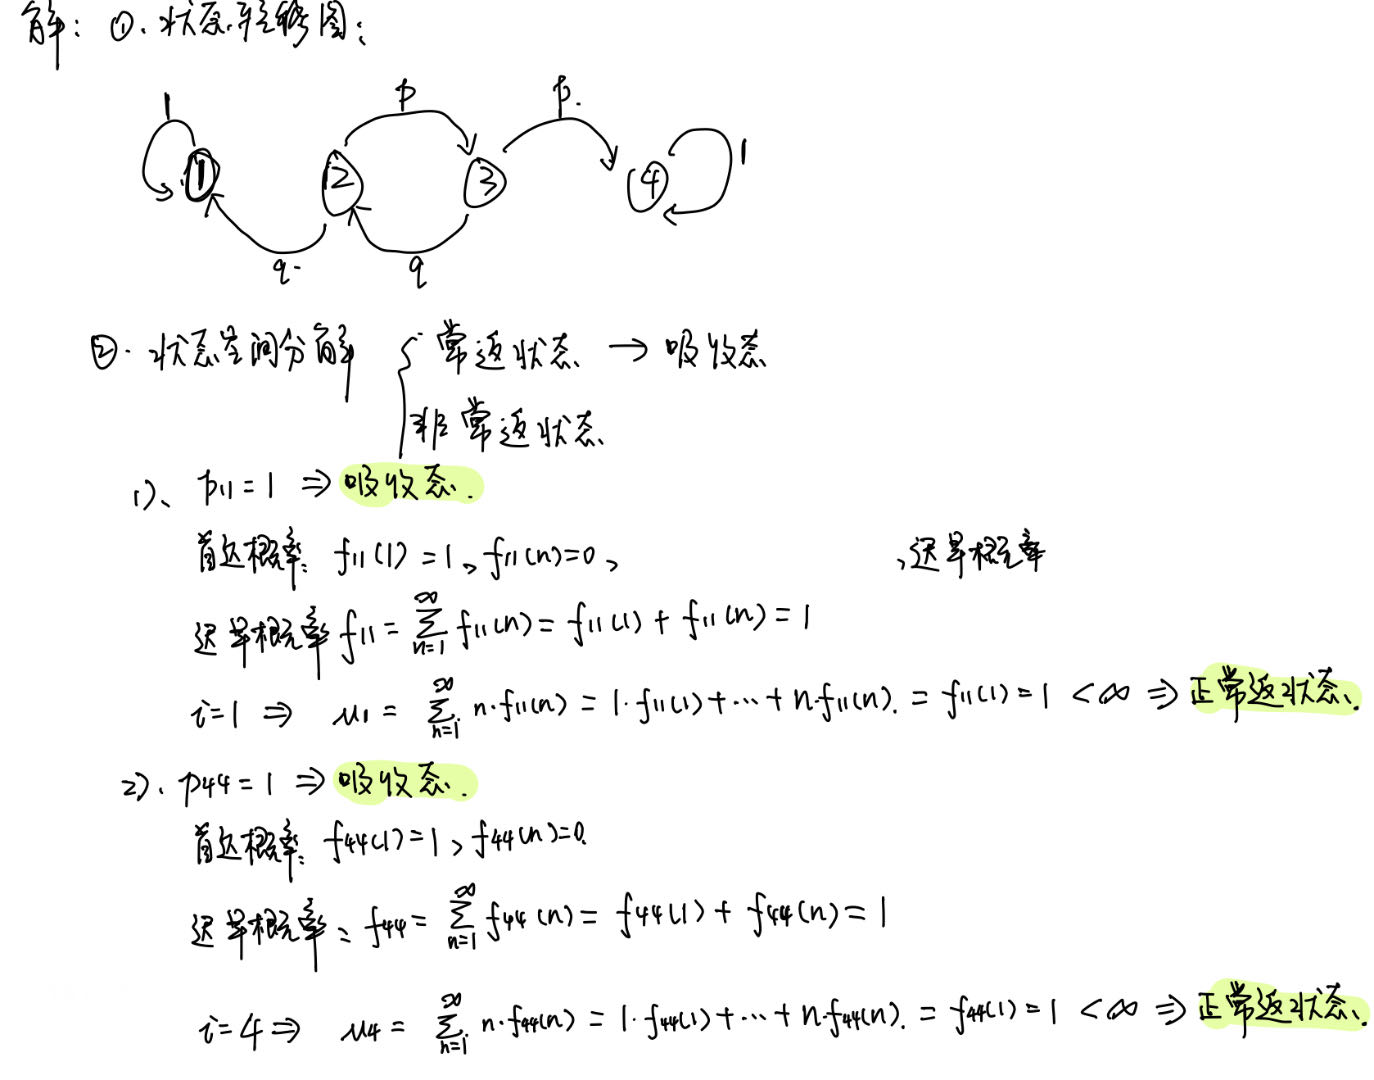 解: ①. 状态转移图:
1 p p.
① ② ③ ④ 1
q. q
②. 状态空间分解 { 常返状态 → 吸收态
非常返状态
1)、 p11 = 1 ⇒ 吸收态.
首达概率: f11(1) = 1, f11(n)=0, 、迟早概率
迟早概率 f11 = ∑_{n=1}^{∞} f11(n) = f11(1) + f11(n) = 1
i=1 ⇒ μ1 = ∑_{n=1}^{∞} n·f11(n) = 1·f11(1)+⋯+n·f11(n). = f11(1) = 1 < ∞ ⇒ 正常返状态.
2)、 p44 = 1 ⇒ 吸收态.
首达概率: f44(1) = 1, f44(n)=0.
迟早概率: f44 = ∑_{n=1}^{∞} f44(n) = f44(1) + f44(n) = 1
i=4 ⇒ μ4 = ∑_{n=1}^{∞} n·f44(n) = 1·f44(1)+⋯+n·f44(n). = f44(1) = 1 < ∞ ⇒ 正常返状态.